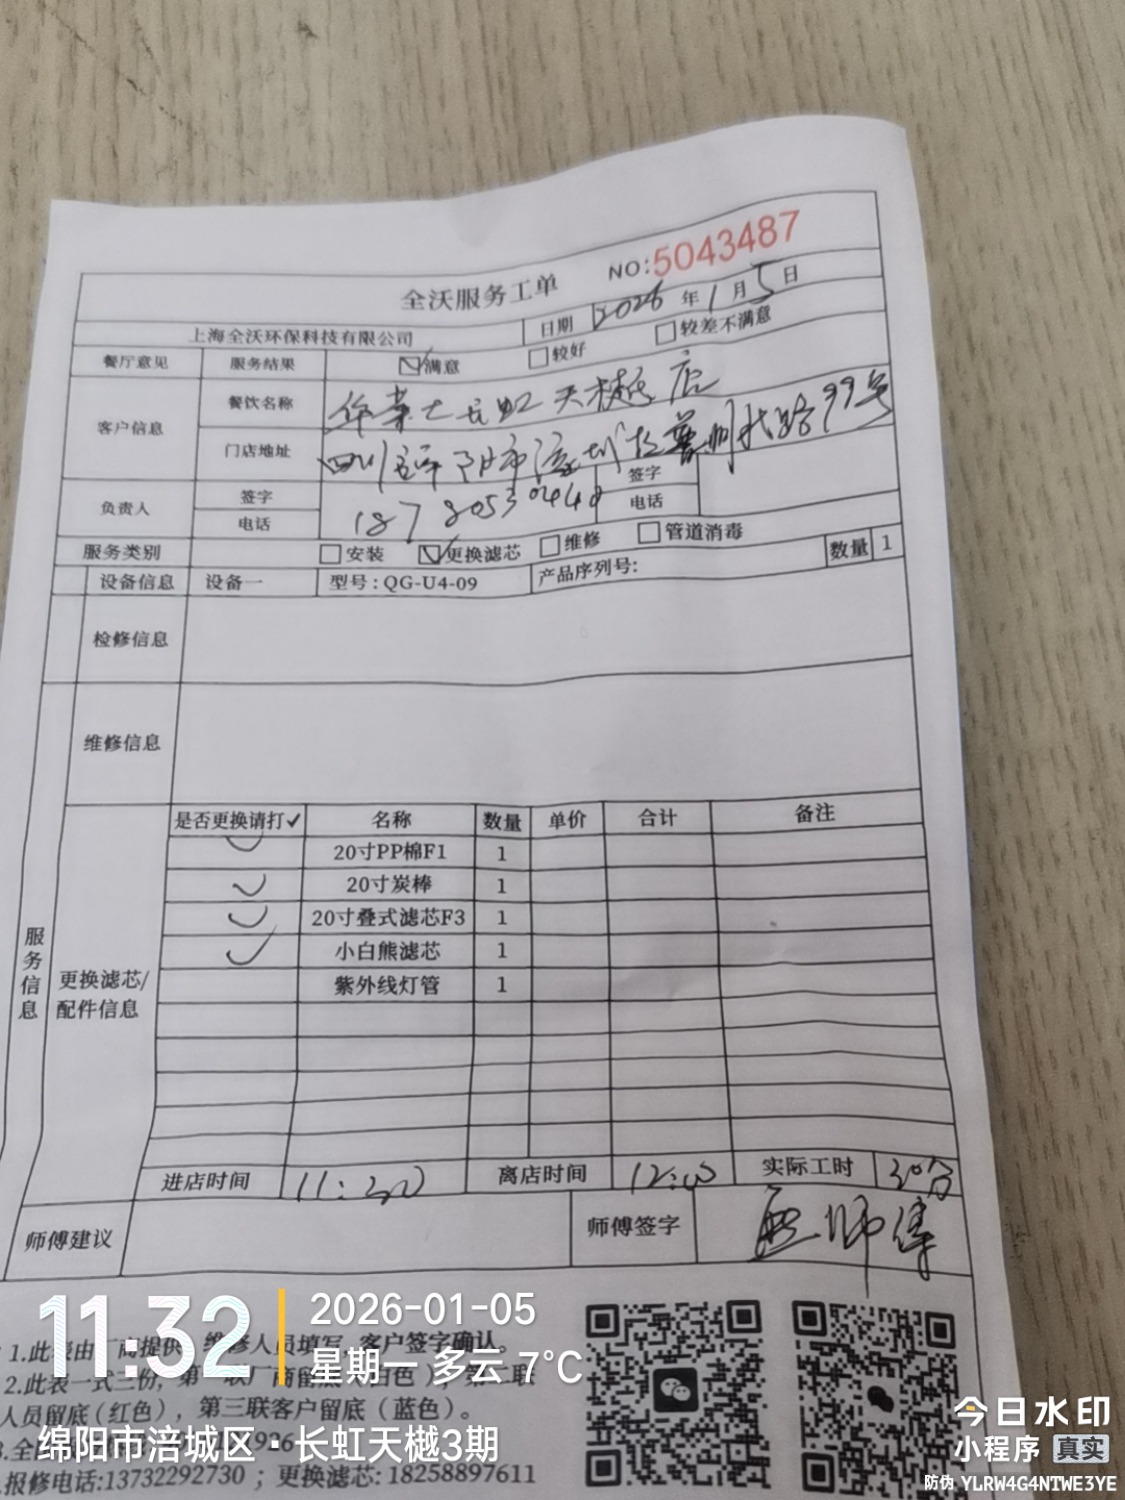 NO:5043487
全沃服务工单
上海全沃环保科技有限公司 日期 2026年1月5日
餐厅意见 服务结果 满意 较好 较差不满意
客户信息 餐饮名称 华莱士长虹天樾店
门店地址 四川省绵阳市涪城区 路99号
负责人 签字 签字
电话 电话
服务类别 安装 更换滤芯 维修 管道消毒
设备信息 设备一 型号:QG-U4-09 产品序列号: 数量 1
检修信息
维修信息
是否更换请打✓ 名称 数量 单价 合计 备注
20寸PP棉F1 1
20寸炭棒 1
20寸叠式滤芯F3 1
小白熊滤芯 1
紫外线灯管 1
服务信息
更换滤芯/
配件信息
进店时间 离店时间 实际工时 30分
师傅建议 师傅签字 师傅
1.此表由厂商提供,维修人员填写,客户签字确认。
2.此表一式三份,第
人员留底(红色),第三联客户留底(蓝色)。
报修电话:13732292730;更换滤芯:18258897611
11:32
2026-01-05
星期一 多云 7°C
绵阳市涪城区·长虹天樾3期
今日水印
小程序 真实
防伪 YLRW4G4NTWE3YE